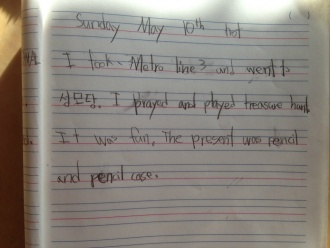 Sunday May 10th hot
I took Metro line 3 and went to
성모당. I prayed and played treasure hunt
It was fun, The present was pencil
and pencil case.